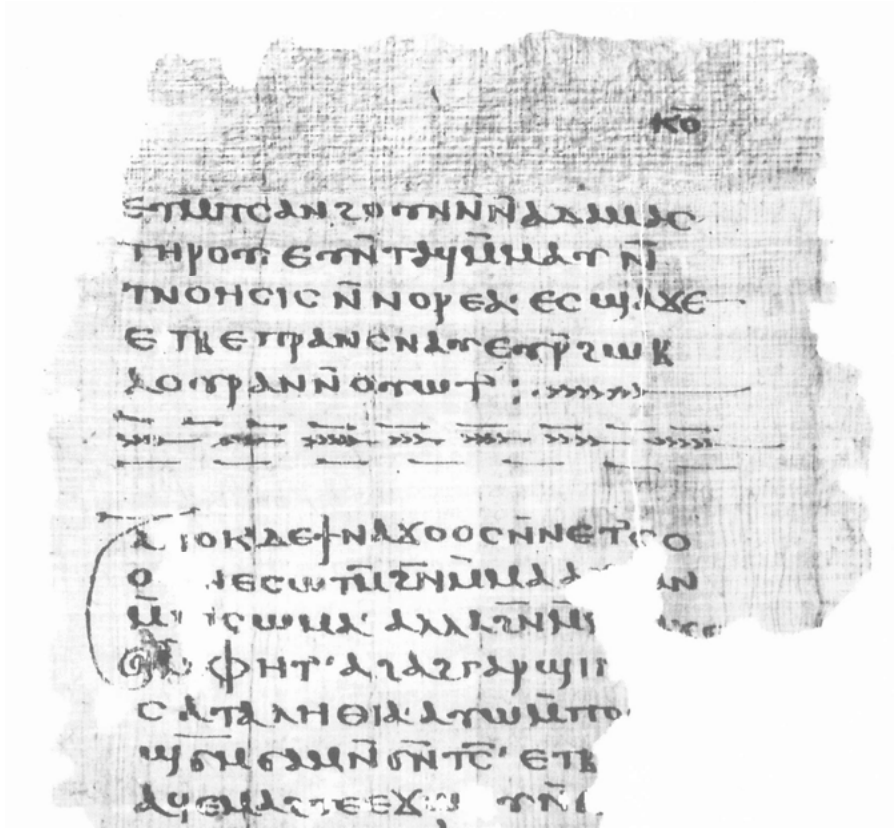 ⲕⲑ̄
ⲉⲧⲙ̄ⲡⲥⲁⲛϩⲟⲩⲛⲛ̄ⲛ̄ⲁⲇⲁⲙⲁⲥ
ⲧⲏⲣⲟⲩ· ⲉⲩⲛ̄ⲧⲁϥⲙ̄ⲙⲁⲩ ⲛ̄
ⲧⲛⲟⲏⲥⲓⲥ ⲛ̄ⲛⲟⲣⲉⲁ· ⲉⲥϣⲁϫⲉ
ⲉⲧⲃⲉⲡⲣⲁⲛⲥⲛⲁⲩ ⲉⲩⲣ̄ϩⲱⲃ
ⲁⲟⲩⲣⲁⲛⲛ̄ⲟⲩⲱⲧ:
ⲁ ⲟⲕⲇⲉϯⲛⲁϫⲟⲟⲥⲛ̄ⲛⲉⲧⲥⲟ
ⲟ ⲛⲉⲥⲱⲧⲙ̄ϩ̄ⲛⲙ̄ⲙⲁⲁ ⲁⲛ
ⲙ̄ ⲥⲱⲙⲁ· ⲁⲗⲗⲁϩ̄ⲛⲙ̄
ⲫⲏⲧ· ⲁϩⲁϩⲅⲁⲣϣⲓ
ⲥⲁⲧⲁⲗⲏⲑⲓⲁ· ⲁⲩⲱⲙ̄ⲡⲟ
ϣϭⲙ̄ϭⲁⲙⲛ̄ϭⲛ̄ⲧⲥ̄· ⲉⲧⲃ
ⲁϥⲉⲙⲁϩⲧⲉⲉϫⲱ ⲩⲛ̄